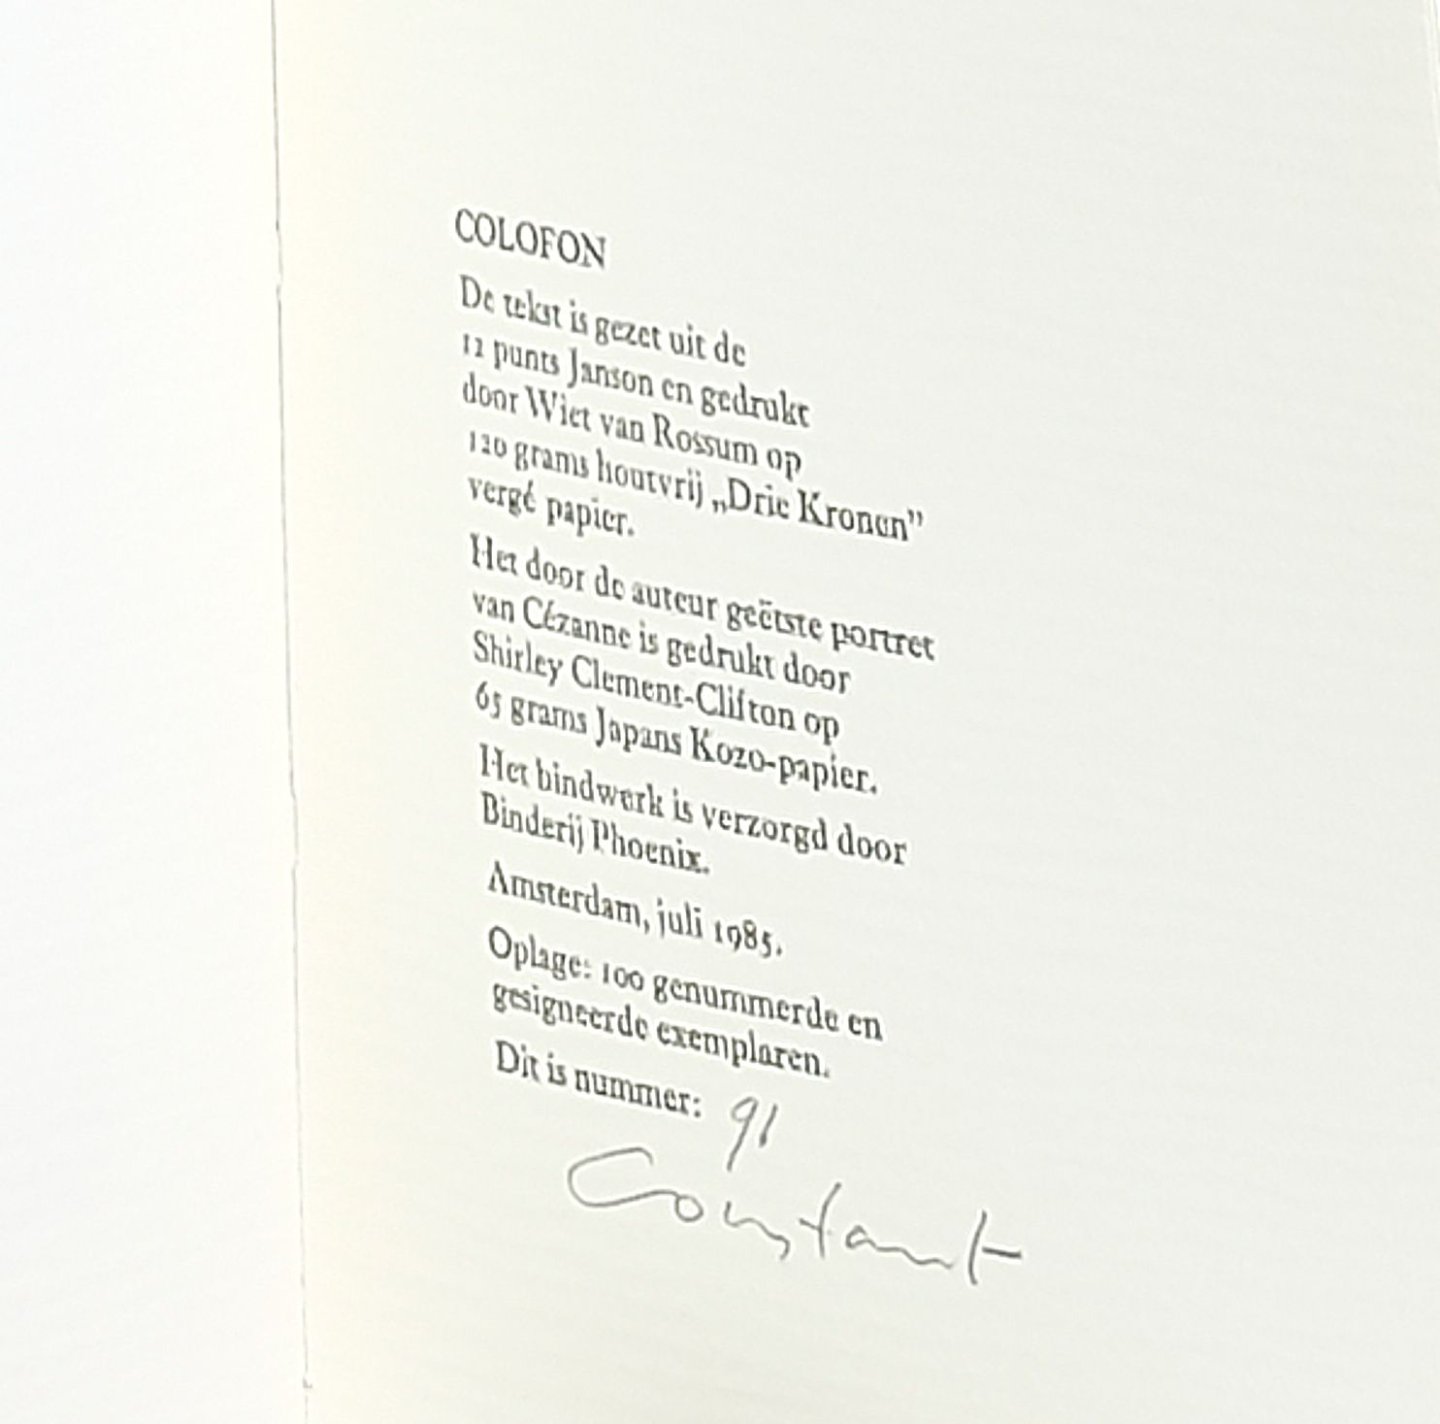 COLOFON
De tekst is gezet uit de
12 punts Janson en gedrukt
door Wiet van Rossum op
120 grams houtvrij „Drie Kronen”
vergé papier.
Het door de auteur geëtste portret
van Cézanne is gedrukt door
Shirley Clement-Clifton op
65 grams Japans Kozo-papier.
Het bindwerk is verzorgd door
Binderij Phoenix.
Amsterdam, juli 1985.
Oplage: 100 genummerde en
gesigneerde exemplaren.
Dit is nummer: 91
Constant